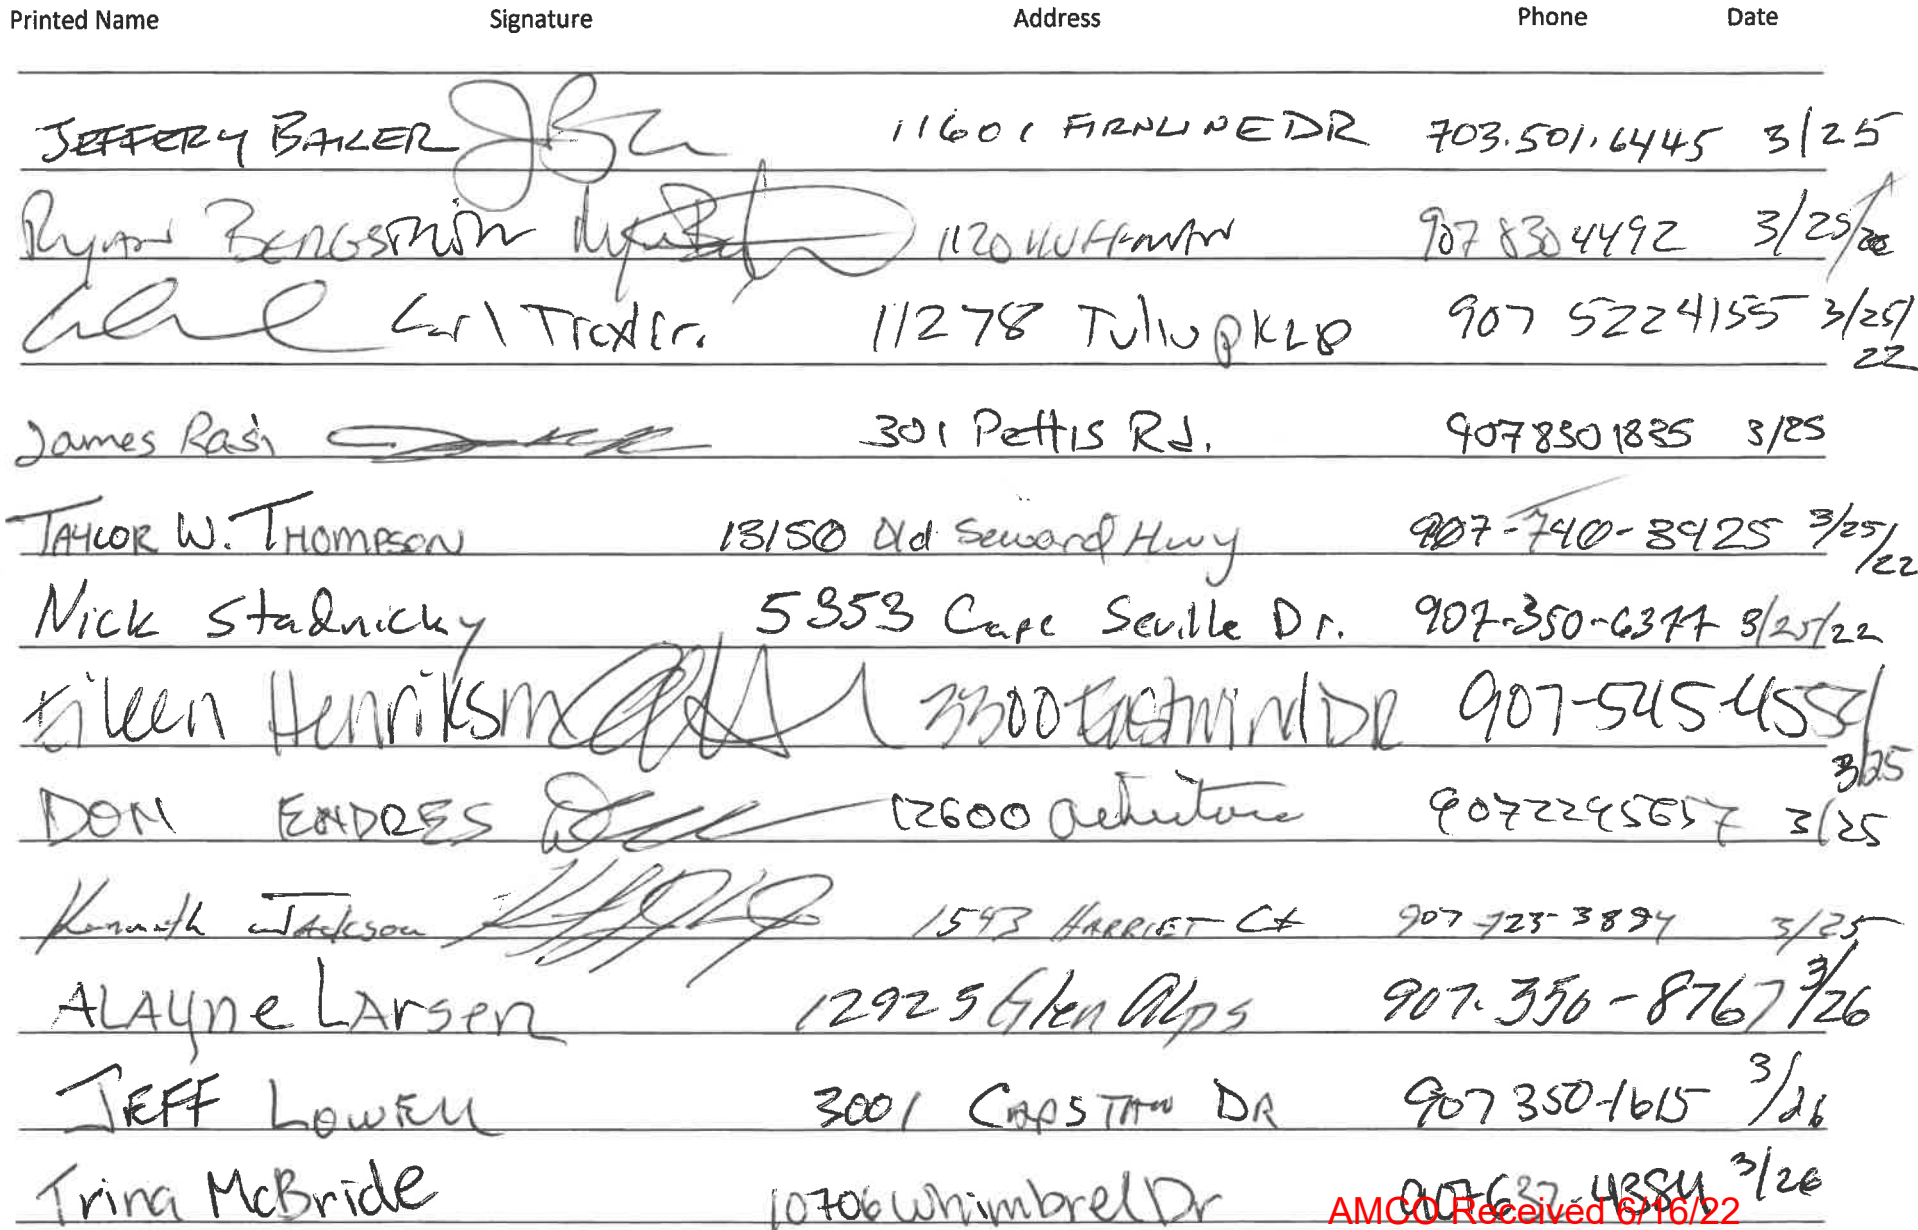 Printed Name Signature Address Phone Date
JEFFERY BAKER 11601 FIRNLINE DR 703.501.6445 3/25
Ryan 1120 Huffman 907 830 4492 3/25/22
Carl 11278 907 522 4155 3/25/22
James Rash 301 Pettis Rd. 907 830 1835 3/25
TAYLOR W. THOMPSON 13150 Old Seward Hwy 907-740-3425 3/25/22
Nick Stadnicky 5353 Cape Seville Dr. 907-350-6377 3/25/22
Eileen Henriksen 3300 Eastwind DR 907-545-455
3/25
DON ENDRES 12600 3/25
Kenneth Jackson 1543 HARRIET Ct 3/25
ALAyne LArsen 12925 Glen Alps 907-350-8767 3/26
JEFF LOWELL 3001 CAPSTAN DR 907 350-1615 3/26
Trina McBride 10706 Whimbrel Dr 907 632-4384 3/26
AMCO Received 6/16/22